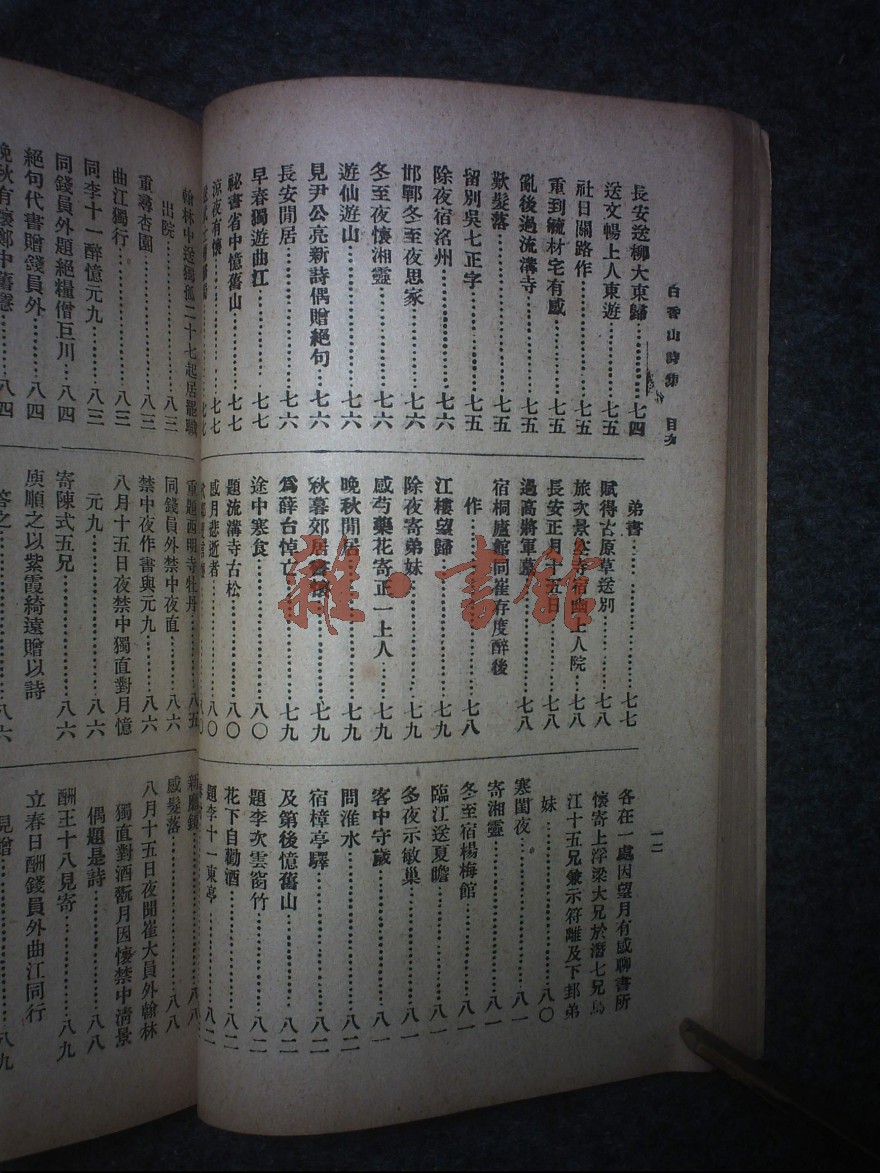 白香山詩集 目次
一二
長安送柳大東歸……七四
送文暢上人東遊……七五
社日關路作……七五
重到毓材宅有感……七五
亂後過流溝寺……七五
歎髮落……七五
留別吳七正字……七五
除夜宿洺州……七六
邯鄲冬至夜思家……七六
冬至夜懷湘靈……七六
遊仙遊山……七六
見尹公亮新詩偶贈絕句……七六
長安閒居……七六
早春獨遊曲江……七七
祕書省中憶舊山……七七
涼夜有懷……七七
弟書……七七
賦得古原草送別……七八
旅次景空寺宿幽上人院……七八
長安正月十五日……七八
過高將軍墓……七八
宿桐廬館同崔存度醉後
作……七八
江樓望歸……七九
除夜寄弟妹……七九
感芍藥花寄正一上人……七九
晚秋閒居……七九
秋暮郊居書懷……七九
為薛台悼亡……七九
途中寒食……八〇
題流溝寺古松……八〇
感月悲逝者……八〇
各在一處因望月有感聊書所
懷寄上浮梁大兄於潛七兄烏
江十五兄兼示符離及下邽弟
妹……八〇
寒閨夜……八一
寄湘靈……八一
冬至宿楊梅館……八一
臨江送夏瞻……八一
冬夜示敏巢……八一
客中守歲……八一
問淮水……八二
宿樟亭驛……八二
及第後憶舊山……八二
題李次雲窗竹……八二
花下自勸酒……八二
題李十一東亭……八二
翰林中送獨孤二十七起居罷職
出院……八三
重尋杏園……八三
曲江獨行……八三
同李十一醉憶元九……八三
同錢員外題絕糧僧巨川……八四
絕句代書贈錢員外……八四
晚秋有懷鄭中舊隱……八四
重題西明寺牡丹……八五
同錢員外禁中夜直……八六
禁中夜作書與元九……八六
八月十五日夜禁中獨直對月憶
元九……八六
寄陳式五兄……八六
庾順之以紫霞綺遠贈以詩
答之……八六
感髮落……八八
八月十五日夜聞崔大員外翰林
獨直對酒翫月因懷禁中清景
偶題是詩……八八
酬王十八見寄……八九
立春日酬錢員外曲江同行
見贈……八九
雜·書館